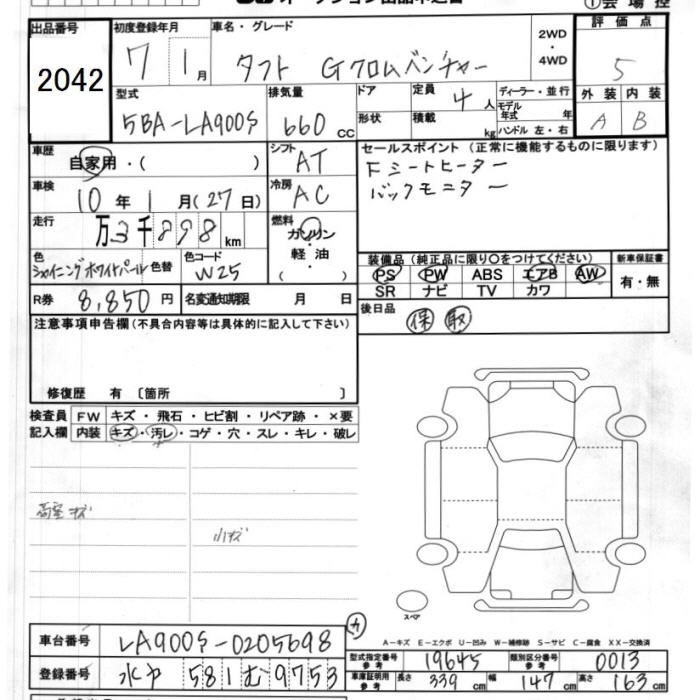 ①会場控
出品番号 初度登録年月 車名・グレード 2WD・4WD 評価点
2042 7 1月 タフト Gクロムベンチャー 5
型式 排気量 ドア 定員 4人 ディーラー・並行 外装 内装
5BA-LA900S 660cc 形状 積載 kg モデル年式 年 ハンドル 左・右 A B
車歴 シフト セールスポイント(正常に機能するものに限ります)
自家用・( ) AT Fシートヒーター
車検 冷房 バックモニター
10年1月(27日) AC
走行 燃料
万3千898km ガソリン
軽油
・( )
色 色替 色コード 装備品(純正品に限り○をつけてください) 新車保証書
シャイニングホワイトパール W25 PS PW ABS エアB AW 有・無
SR ナビ TV カワ
R券 8,850円 名変通知期限 月 日 後日品
保 取
注意事項申告欄(不具合内容等は具体的に記入して下さい)
修復歴 有 〔箇所 〕
検査員 FW キズ・飛石・ヒビ割・リペア跡・×要
記入欄 内装 キズ・汚レ・コゲ・穴・スレ・キレ・破レ
小キズ
スペア
カ
A-キズ E-エクボ U-凹み W-補修跡 S-サビ C-腐食 XX-交換済
車台番号 LA900S-0205698 型式指定番号 参考 19645 類別区分番号 参考 0013
登録番号 581む9753 車庫証明用 参考 長さ 339cm 幅 147cm 高さ 163cm